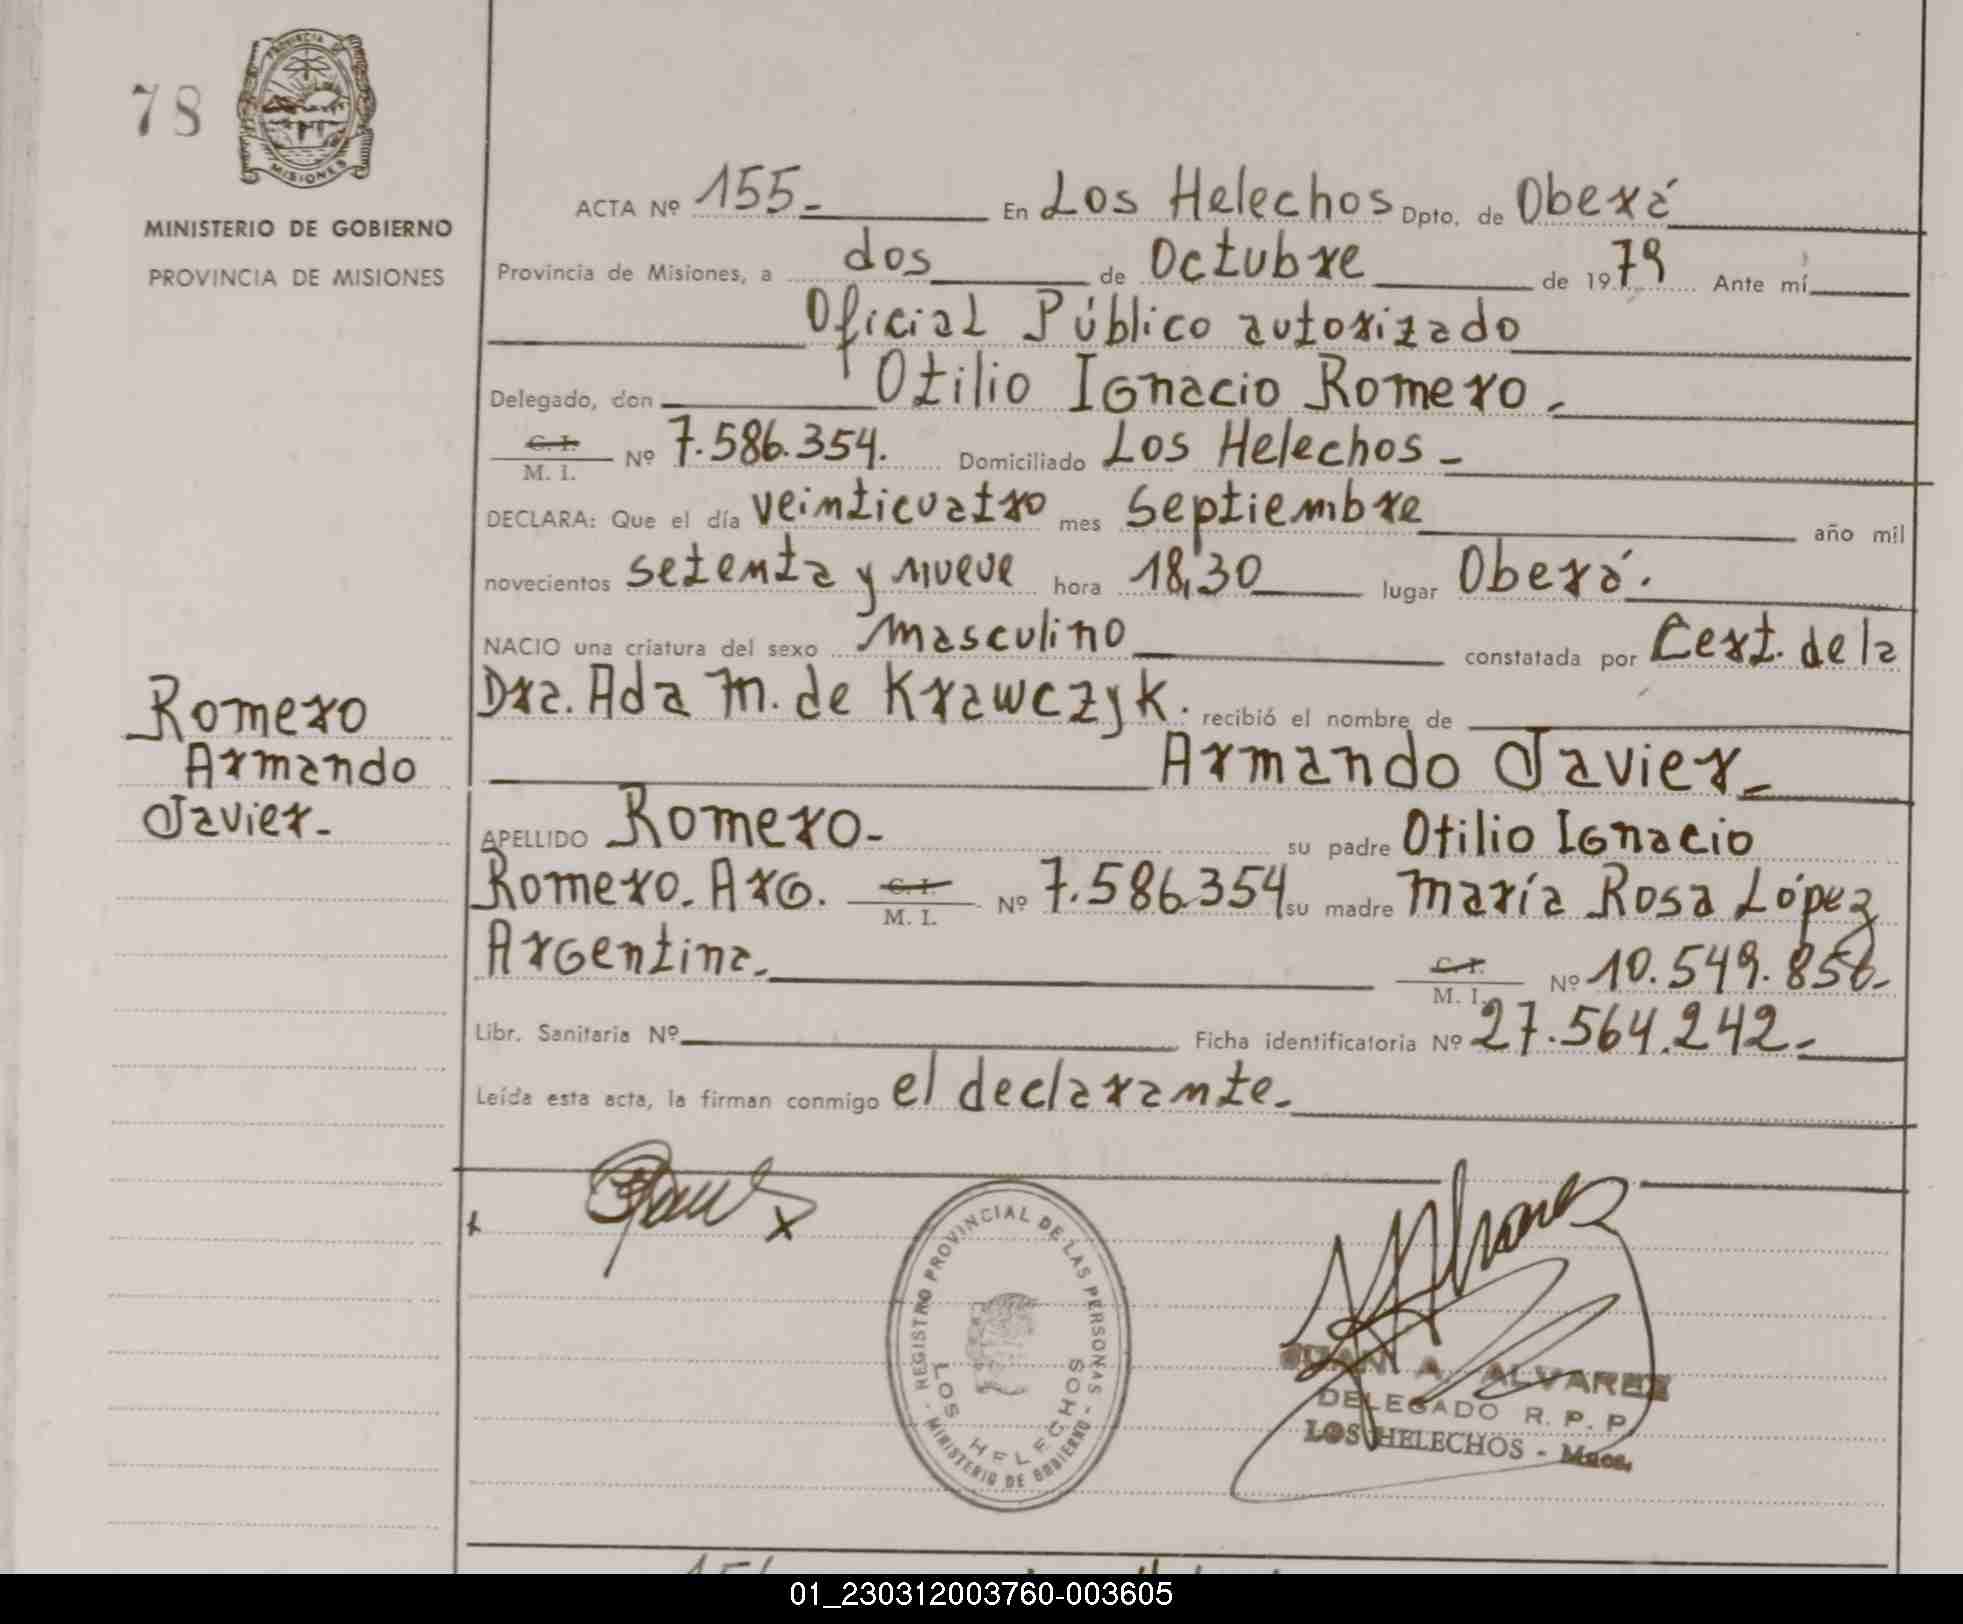 78
PROVINCIA DE
MISIONES
MINISTERIO DE GOBIERNO
PROVINCIA DE MISIONES
ACTA Nº 155.- En Los Helechos Dpto. de Oberá
Provincia de Misiones, a dos de Octubre de 1979 Ante mí
Oficial Público autorizado
Delegado, don Otilio Ignacio Romero.-
C. I.
M. I. Nº 7.586.354. Domiciliado Los Helechos-
DECLARA: Que el día veinticuatro mes Septiembre año mil
novecientos setenta y nueve hora 18,30 lugar Oberá.
NACIO una criatura del sexo masculino constatada por Cert. de la
Dra. Ada M. de Krawczyk. recibió el nombre de
Armando Javier.-
Romero
Armando
Javier.-
APELLIDO Romero- su padre Otilio Ignacio
Romero. Arg. C. I.
M. I. Nº 7.586.354 su madre María Rosa López
Argentina.- C. I.
M. I. Nº 10.549.856.-
Libr. Sanitaria Nº Ficha identificatoria Nº 27.564.242.-
Leída esta acta, la firman conmigo el declarante.-
x x
REGISTRO PROVINCIAL DE LAS PERSONAS - MINISTERIO DE GOBIERNO -
LOS HELECHOS
JUAN A. ALVAREZ
DELEGADO R. P. P.
LOS HELECHOS - Mnes.
01_230312003760-003605